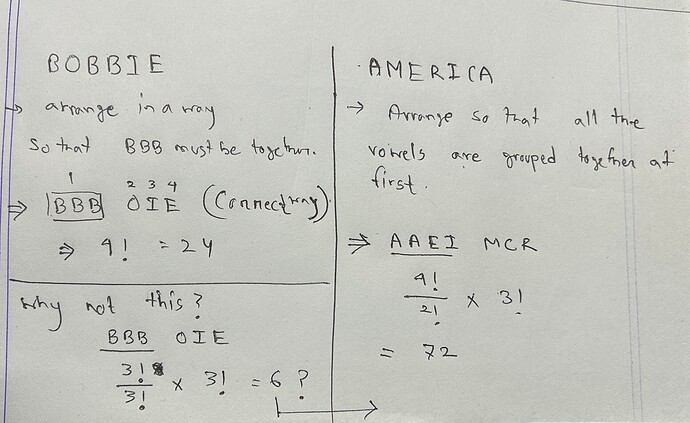 BOBBIE
→ arrange in a way
so that BBB must be together.
1 2 3 4
⇒ BBB OIE (Correct way)
⇒ 4! = 24
Why not this?
BBB OIE
3!/3! × 3! = 6 ?
AMERICA
→ Arrange so that all the
vowels are grouped together at
first.
⇒ AAEI MCR
4!/2! × 3!
= 72